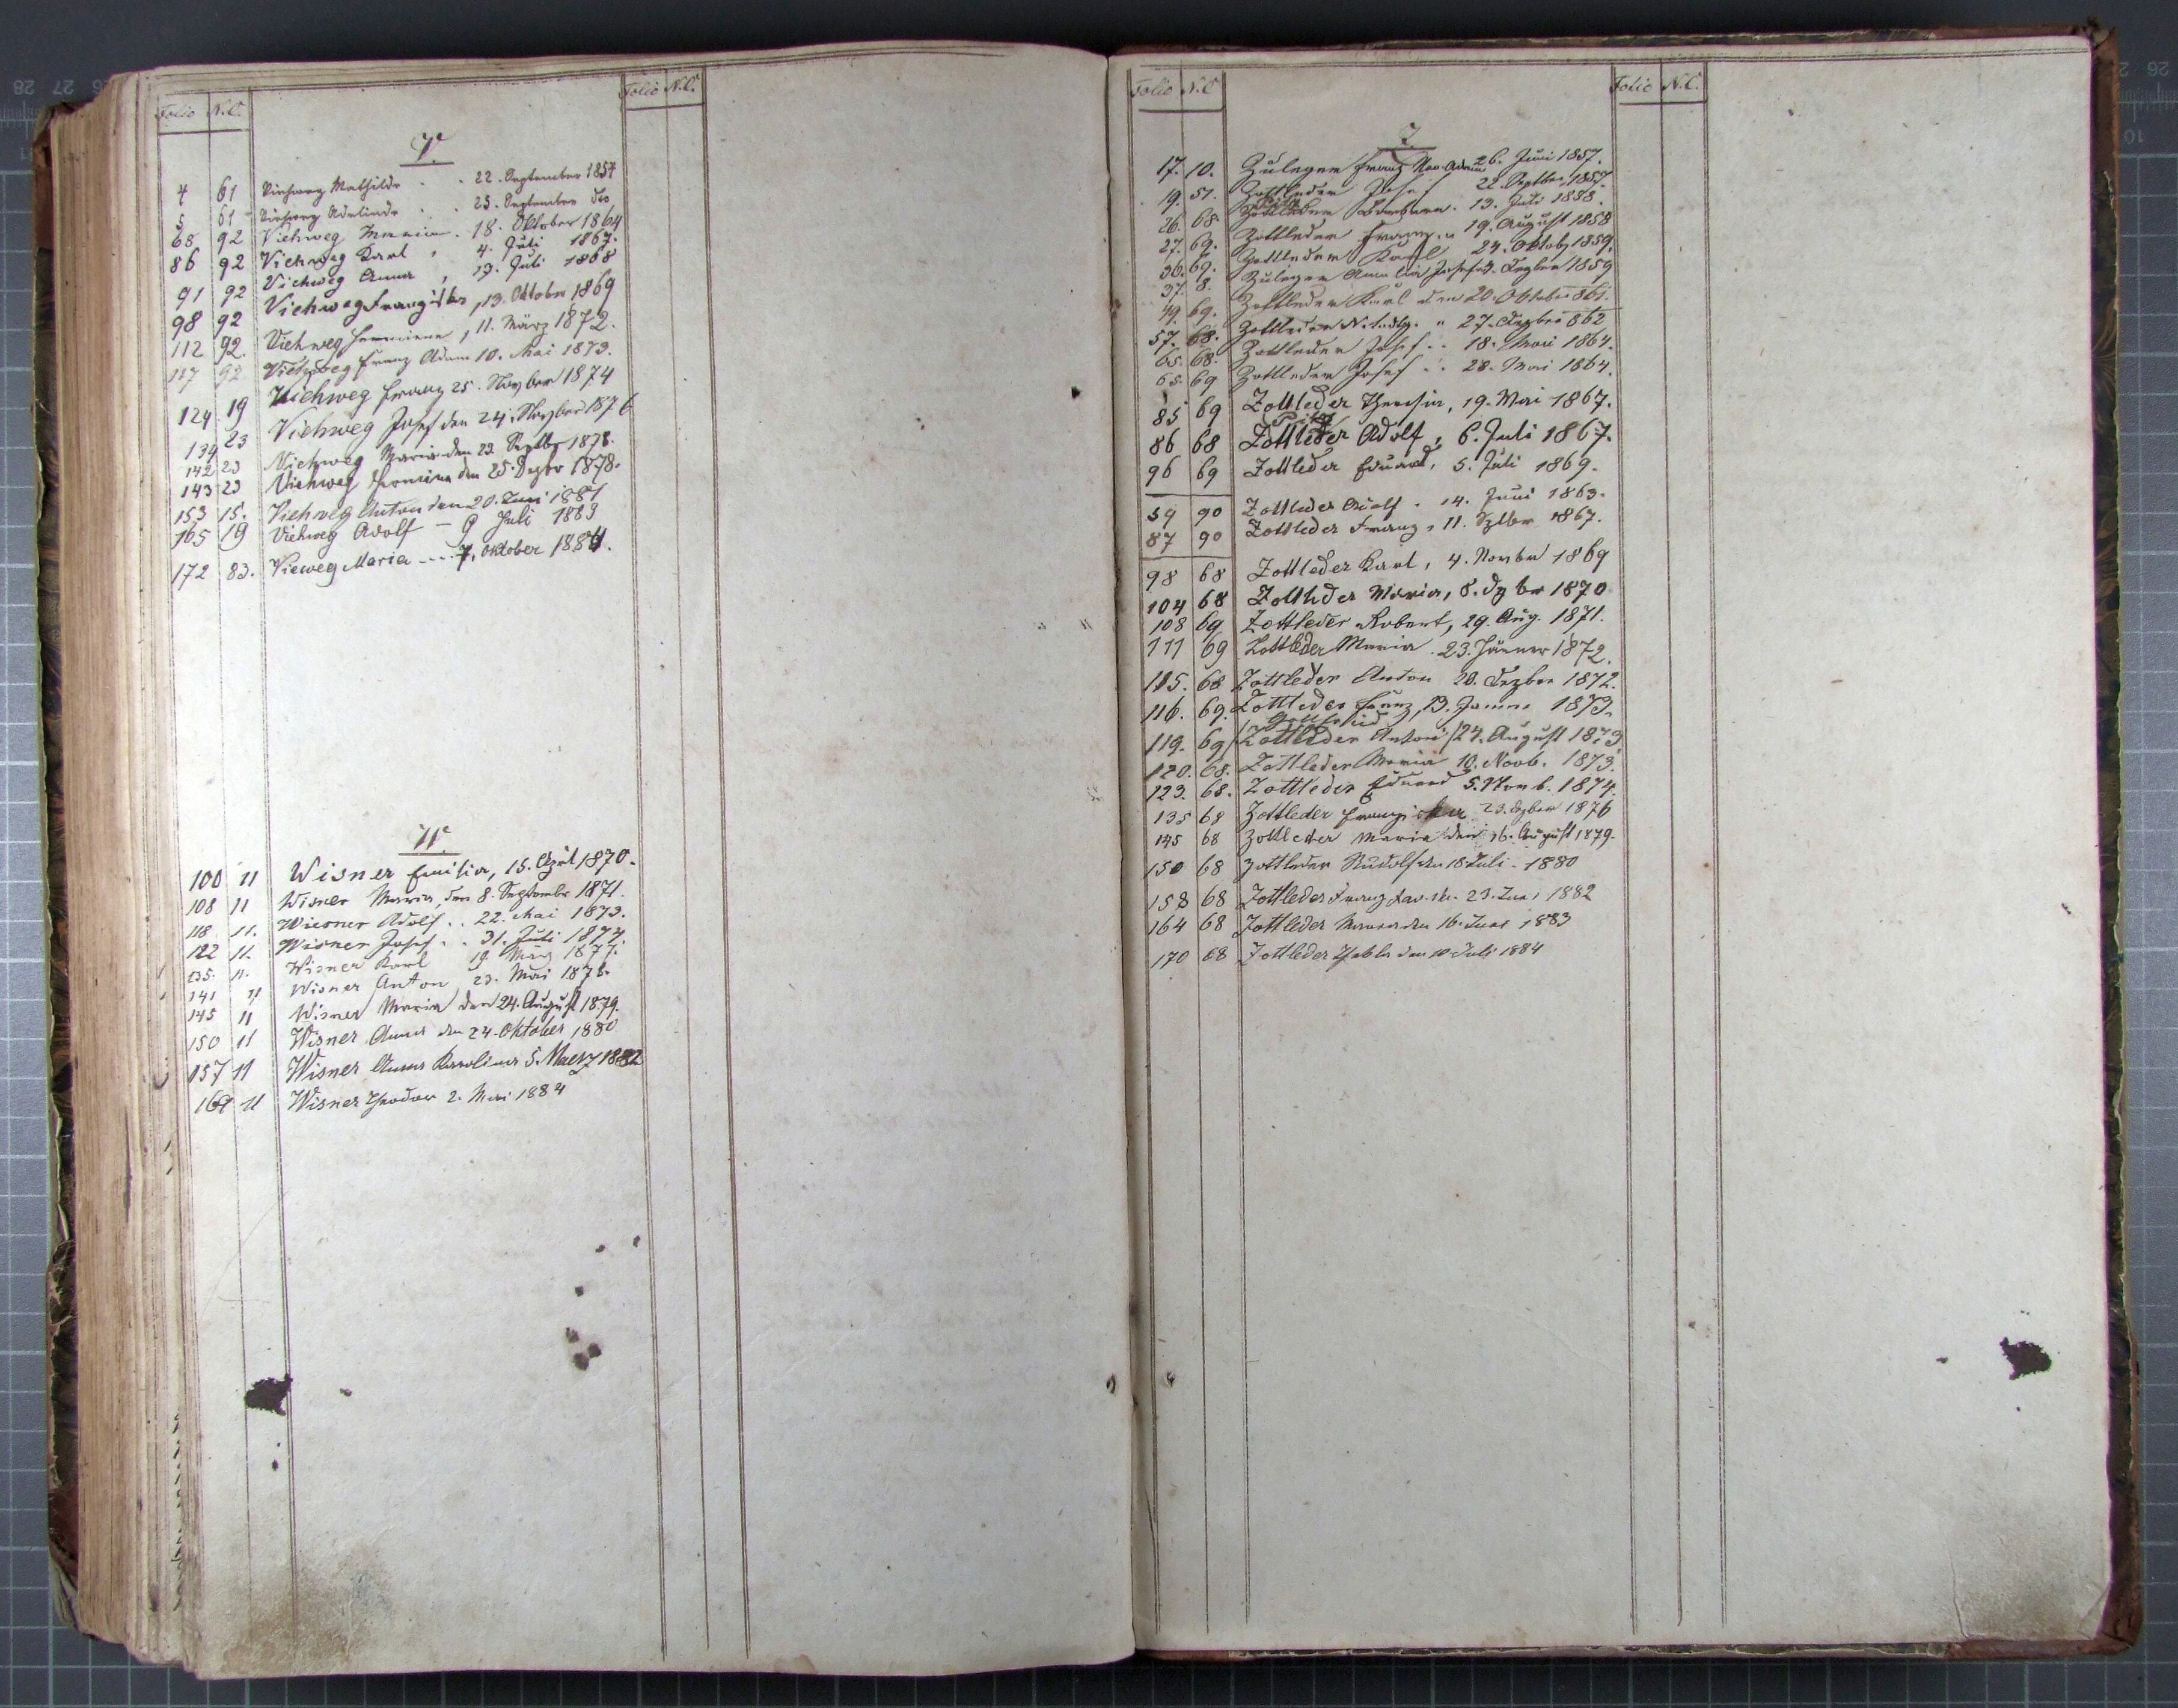 Folio N.C. Folio N.C.
V.
4 61 Viehweg Mathilde . . 22. September 1857
5 61 Viehweg Adelinde . . 25. September dto
68 92 Viehweg Maria . 18. Oktober 1864
86 92 Viehweg Karl , 4. Juli 1867.
91 92 Viehweg Anna , 13. Juli 1868
98 92 Viehweg Franziska , 13. Oktober 1869
112 92. Viehweg Hermine , 11. März 1872.
117 92 Viehweg Franz Adam 10. Mai 1873.
124 19 Viehweg Franz 25. November 1874
134 23 Viehweg Josef den 24. November 1876
142 23 Viehweg Maria den 22. Septbr 1878.
143 23 Viehweg Hermina den 25. Dezbr 1878.
153 15. Viehweg Anton den 20. Juni 1881
165 19 Viehweg Adolf – 9 Juli 1883
172 83. Vieweg Maria --- 7. Oktober 1884.
W.
100 11 Wisner Emilia, 15. April 1870.
108 11 Wisner Maria, den 8. September 1871.
118 11. Wiesner Adolf . . 22. Mai 1873.
122 11. Wisner Josef . . 31. Juli 1874.
135. 11. Wisner Karl 19. März 1877.
141 11 Wisner Anton 23. Mai 1878.
145 11 Wisner Maria den 24. August 1879.
150 11 Wisner Anna den 24. Oktober 1880
157 11 Wisner Anna Karolina 5. Maerz 1882
169 11 Wisner Theodor 2. Mai 1884
Folio N.C. Folio N.C.
Z.
17. 10. Zuleger Franz Xav. Adam 26. Juni 1857.
19. 51. Zottleder Josef 22. Septber 1857.
26. 68. Zottleder Barbara. 13. Juli 1858.
27. 69. Zottleder Franz. " 19. August 1858
36. 69. Zottleder Karl 24. Oktob. 1859.
37. 8. Zuleger Amalia Josefa . Dezber 1859
49. 69. Zottleder Karl den 20. Oktober 861.
57. 68. Zottleder " 27. Dezber 862
65. 68. Zottleder Josef . . 18. Mai 1864.
65. 69 Zottleder Josef . . 28. Mai 1864.
85 69 Zottleder Theresia, 19. Mai 1867.
86 68 Zottleder Adolf , 6. Juli 1867.
96 69 Zottleder Eduard, 5. Juli 1869.
59 90 Zottleder Adolf . 14. Juni 1863.
87 90 Zottleder Franz , 11. Sptbr 1867.
98 68 Zottleder Karl, 4. Novbr 1869
104 68 Zottleder Maria, 8. Dzbr 1870
108 69 Zottleder Robert, 29. Aug. 1871.
111 69 Zottleder Maria . 23. Jänner 1872.
115. 68 Zottleder Anton 20. Dezber 1872.
116. 69. Zottleder Franz, 13. Jänner 1873.
Gottfried
119. 69 Zottleder Anton 24. August 1873
120. 68. Zottleder Maria 10. Novb. 1873.
123. 68. Zottleder Eduard 5. Novb. 1874.
135 68 Zottleder Franziska 23. Dzber 1876
145 68 Zottleder Maria den 16. August 1879.
150 68 Zottleder Rudolf den 18 Juli . 1880
158 68 Zottleder Franz Xav. den 23. Juni 1882
164 68 Zottleder Maria den 16. Juni 1883
170 68 Zottleder den 10 Juli 1884